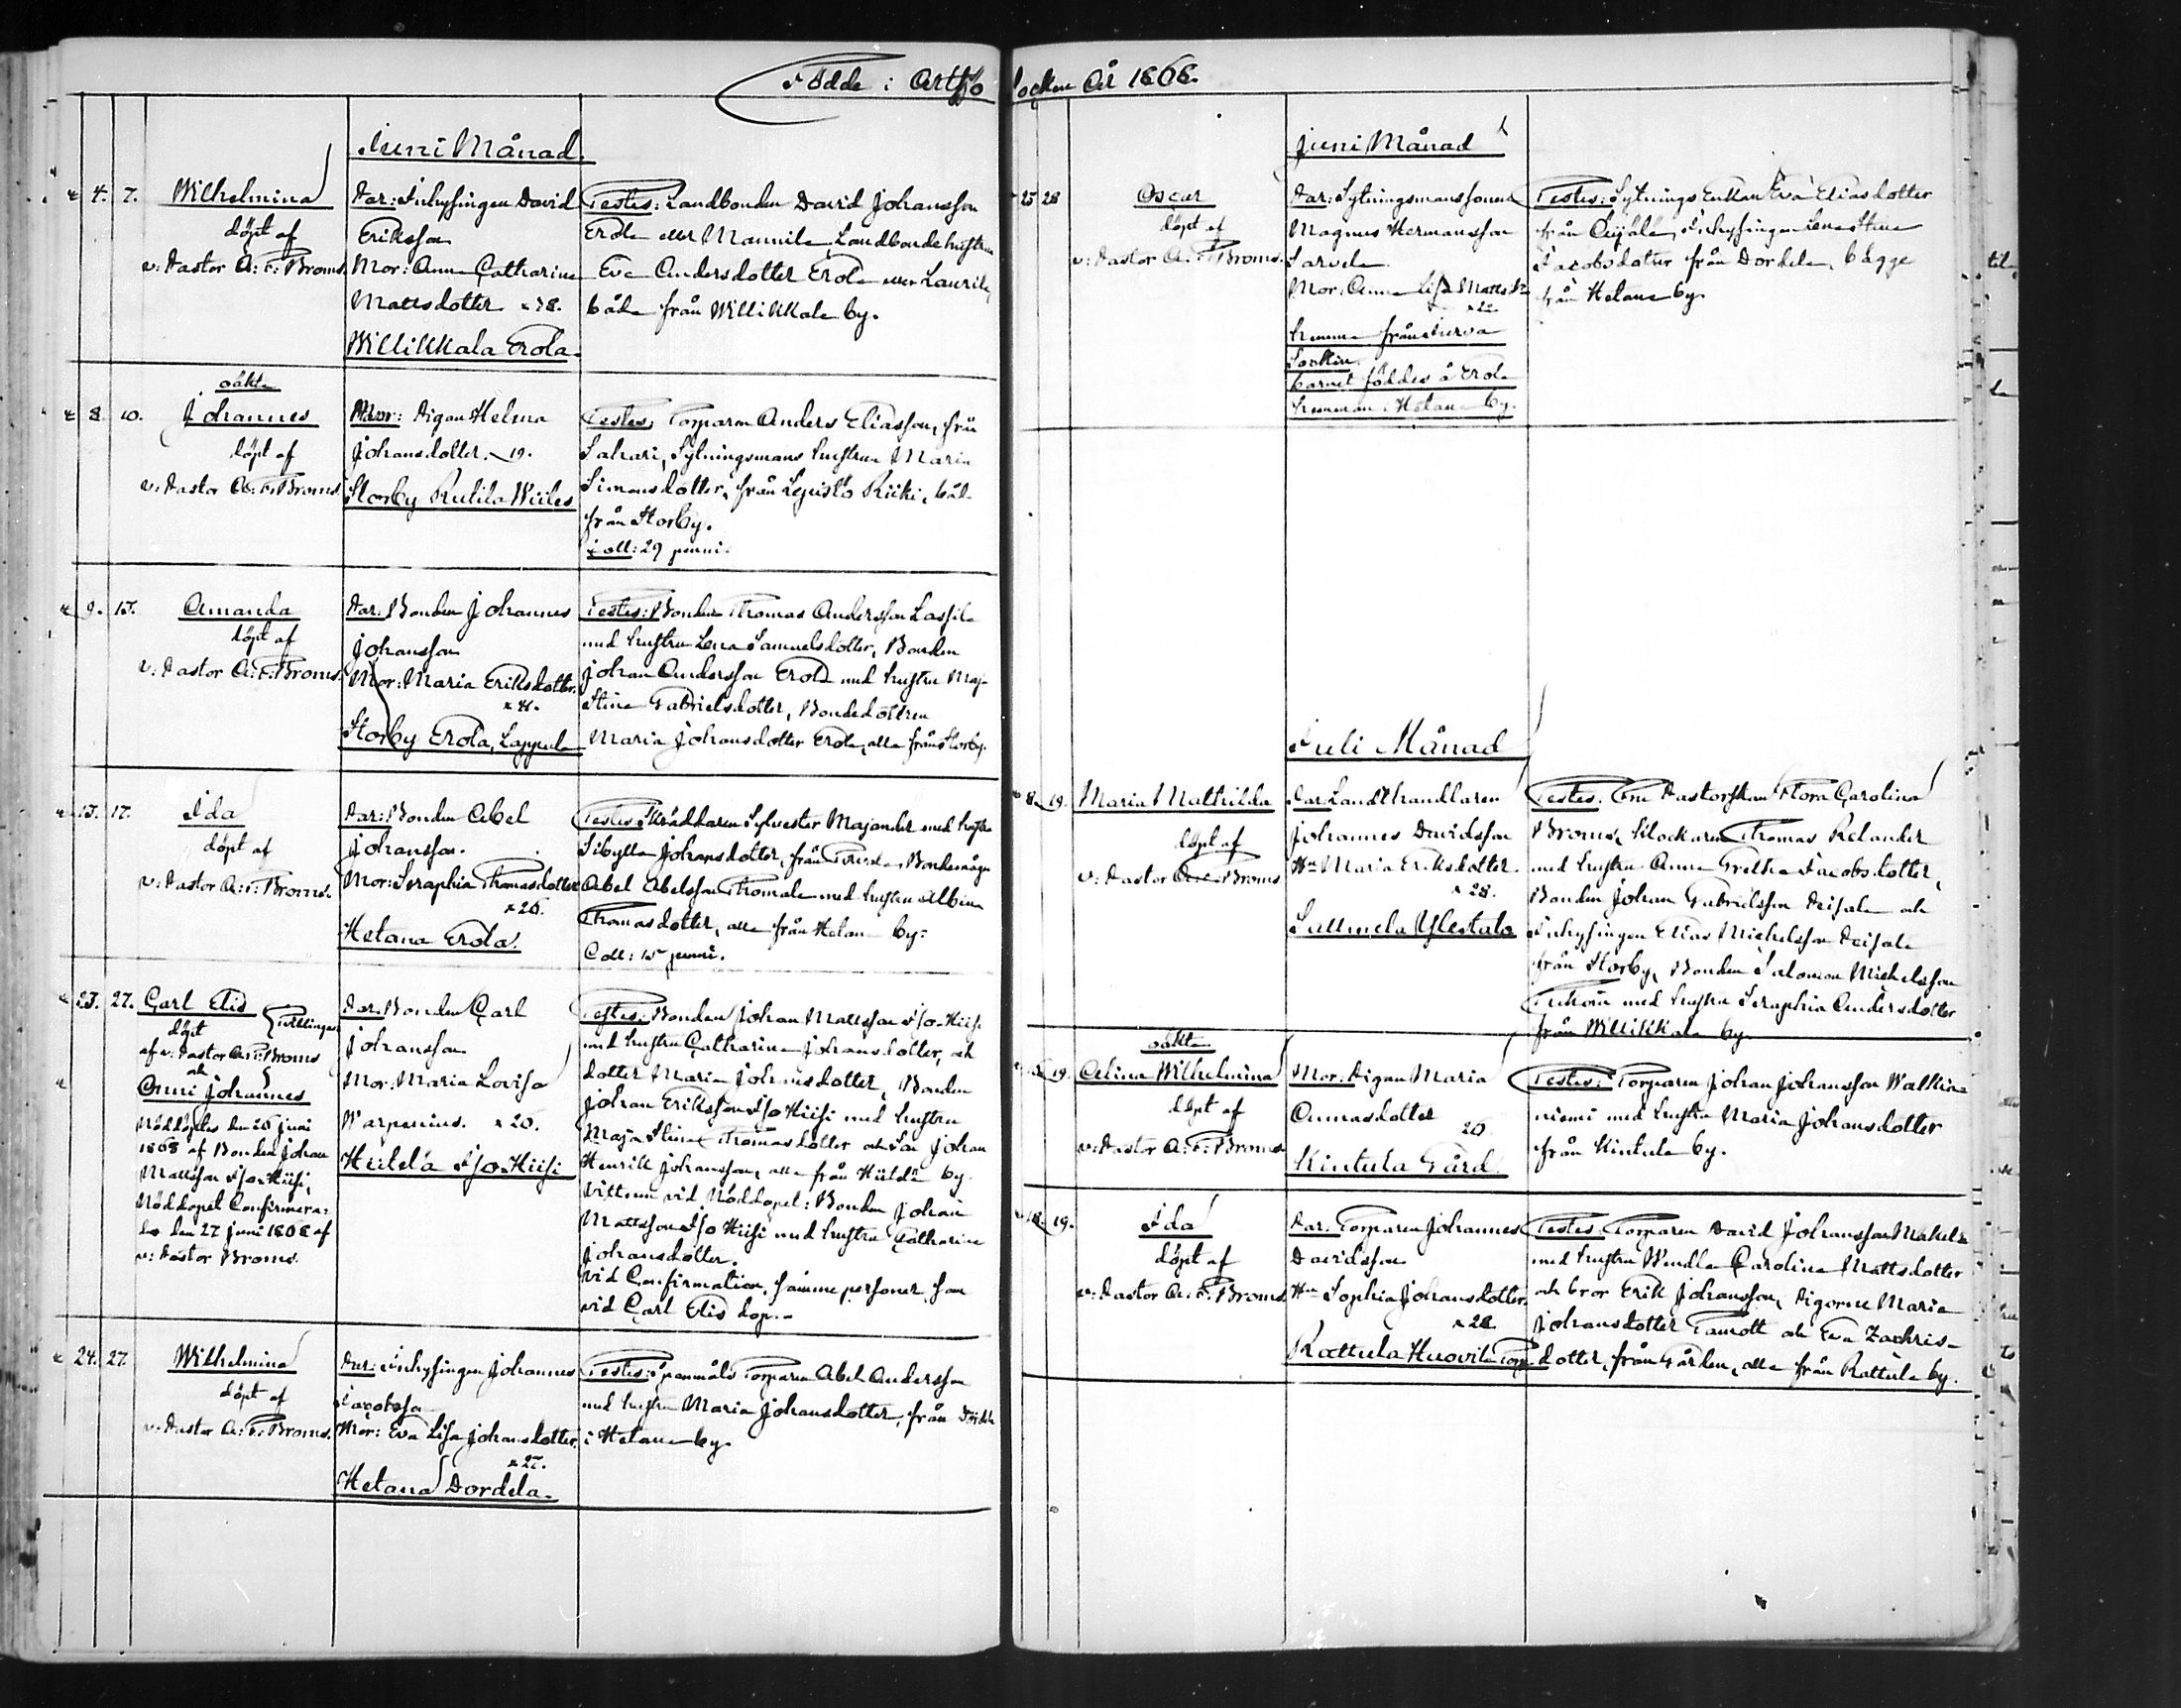 Födde i Arttjö Socken År 1868.
Juni Månad
4. 7. Wilhelmina
döpt af
v: Pastor A: F: Broms.
Par: Inhysingen David
Eriksson
Mor: Anna Catharina
Mattsdotter
Willikkala Erola.
Testes: Landbonden David Johansson
Erola eller Mannila, Landbonde hustrun
Eva Andersdotter Erola eller Laurila,
båda från Willikkala by.
oäkta
8. 10. Johannes
döpt af
v: Pastor A: F: Broms.
Mor: Pigan Helena
Johansdotter. 19.
Storby Rulila Wiiles
Testes: Torparen Anders Eliasson, från
Sahari, Sytningsmans hustrun Maria
Simonsdotter, från Lepistö Riiki, båda
från Storby.
Coll: 29 penni.
9. 15. Amanda
döpt af
v: Pastor A: F: Broms.
Par: Bonden Johannes
Johansson
Mor: Maria Eriksdotter.
Storby Erola, Lappula
Testes: Bonden Thomas Andersson Lassila
med hustru Lena Samuelsdotter, Bonden
Johan Andersson Erola med hustru Maj-
Stina Gabrielsdotter, Bondedottren
Maria Johansdotter Erola, alla från Storby.
15. 17. Ida
döpt af
v: Pastor A: F: Broms.
Par: Bonden Abel
Johansson.
Mor: Seraphia Thomasdotter
26.
Hetana Erola.
Testes: Skräddaren Sylvester Majander med hustru
Sibylla Johansdotter, från Bondemågen
Abel Abelsson Thomala med hustru Albina
Thomasdotter, alla från Hetana by.
Coll: 15 penni.
23. 27. Carl Elis
Tvillingar
döpt
af v: Pastor A: F: Broms
och
Onni Johannes
Nöddöptes den 26 juni
1868 af Bonden Johan
Mattsson Iso-Hiisi,
Nöddopet Confirmera-
des den 27 juni 1868 af
v: Pastor Broms.
Par: Bonden Carl
Johansson
Mor: Maria Lovisa
Warpenius. 26.
Hiidelä Iso-Hiisi
Testes: Bonden Johan Mattsson Iso-Hiisi
med hustru Catharina Johansdotter, och
dotter Maria Johansdotter, Bonden
Johan Eriksson Iso Hiisi med hustru
Maja Stina Thomasdotter och Son Johan
Henrik Johansson, alla från Hiidelä by.
Vittnen vid Nöddopet: Bonden Johan
Mattsson Iso Hiisi med hustru Catharina
Johansdotter.
Vid Confirmation, samma personer som
vid Carl Elis dop.
24. 27. Wilhelmina
döpt af
v: Pastor A: F: Broms.
Par: Inhysingen Johannes
Jacobsson
Mor: Eva Lisa Johansdotter.
27.
Hetana Dordela.
Testes: Spannmåls Torparen Abel Andersson
med hustru Maria Johansdotter, från
i Hetana by.
Juni Månad
25 28 Oscar
döpt af
v: Pastor A: F: Broms.
Par: Sytningsmanssonen
Magnus Hermansson
Sarvela
Mor: Anna Lisa Mattsdr
hemma från Iurva
Socken.
barnet föddes å Erola
hemman i Hetana by.
Testes: Sytnings Enkan Eva Eliasdotter
från Inhysingen Lena Stina
Jacobsdotter från Dordela, bägge
från Hetana by.
Juli Månad
8. 19. Maria Mathilda
döpt af
v: Pastor A: F: Broms
Par: Landthandlaren
Johannes Davidsson
Hu Maria Eriksdotter.
28.
Salmela Ylestalo
Testes: Fru Pastorskan Flora Carolina
Broms, Klockaren Thomas Relander
med hustru Anna Gretha Jacobsdotter,
Bonden Johan Gabrielsson Peisala och
Inhysingen Elias Michelsson Peisala
från Storby, Bonden Salomon Michelsson
med hustru Seraphia Andersdotter
från Willikkala by.
oäkta
19. Celina Wilhelmina
döpt af
v: Pastor A: F: Broms
Mor: Pigan Maria
Annasdotter
26.
Kintula Gård.
Testes: Torparen Johan Johansson Walkia-
niemi med hustru Maria Johansdotter
från Kintula by.
18. 19. Ida
döpt af
v: Pastor A: F: Broms.
Par: Torparen Johannes
Davidsson
Hu Sophia Johansdotter.
28.
Rattula Huovila Torp
Testes: Torparen David Johansson Makela
med hustru Wendla Carolina Mattsdotter
och bror Erik Johansson, Pigorne Maria
Johansdotter Tamott och Eva Zachris-
dotter, från Gården, alla från Rattula by.